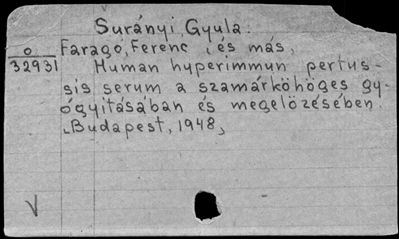 Surányi Gyula:
o
32931
Faragó, Ferenc, és más,
Human hyperimmun pertus-
sis serum a szamárköhöges gy-
ógyitásában és megelözésében.
Budapest, 1948,
V